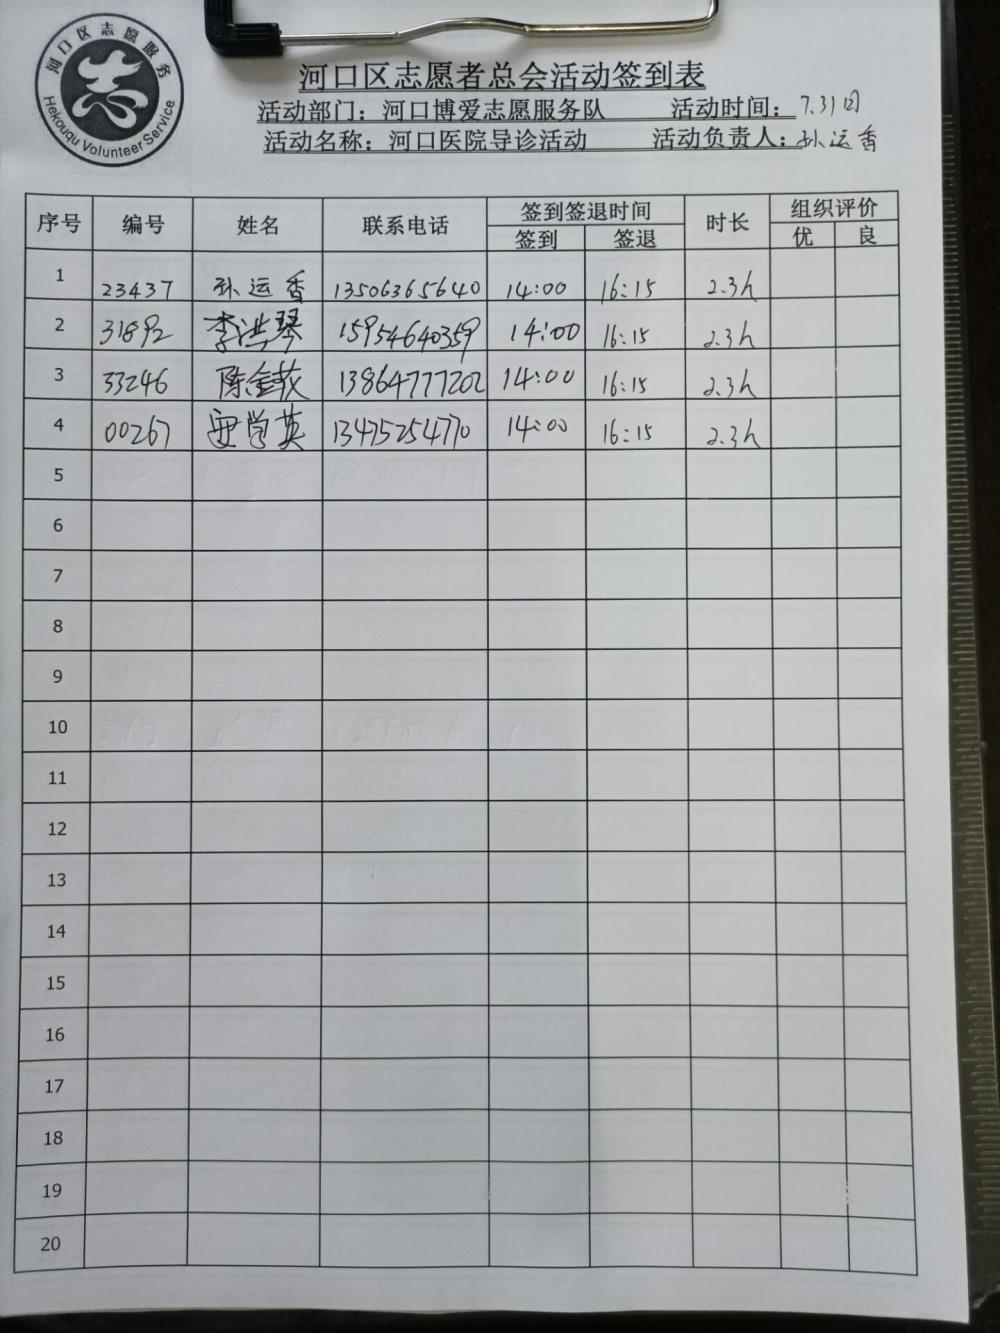 河口区志愿服务
Hekouqu Volunteer Service
河口区志愿者总会活动签到表
活动部门：河口博爱志愿服务队 活动时间：7.31日
活动名称：河口医院导诊活动 活动负责人：孙运香
序号 编号 姓名 联系电话 签到签退时间 时长 组织评价
签到 签退 优 良
1 23437 孙运香 13506365640 14:00 16:15 2.3h
2 31892 李洪琴 15954640359 14:00 16:15 2.3h
3 33246 陈金枝 13864777202 14:00 16:15 2.3h
4 00267 英 13475254770 14:00 16:15 2.3h
5
6
7
8
9
10
11
12
13
14
15
16
17
18
19
20